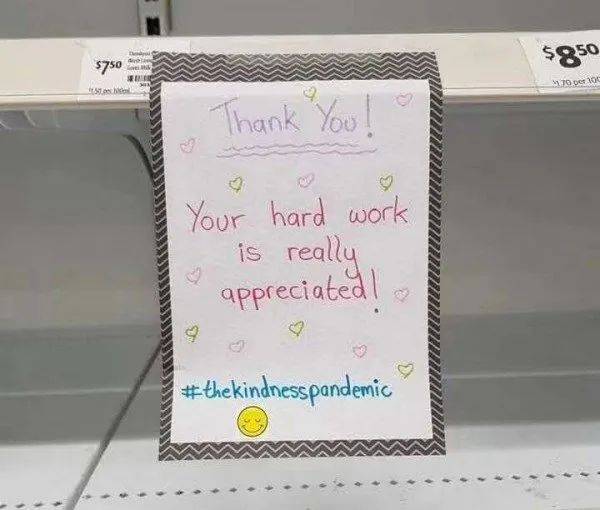 $7.50
$8.50
Thank You!
Your hard work
is really
appreciated!
#thekindnesspandemic